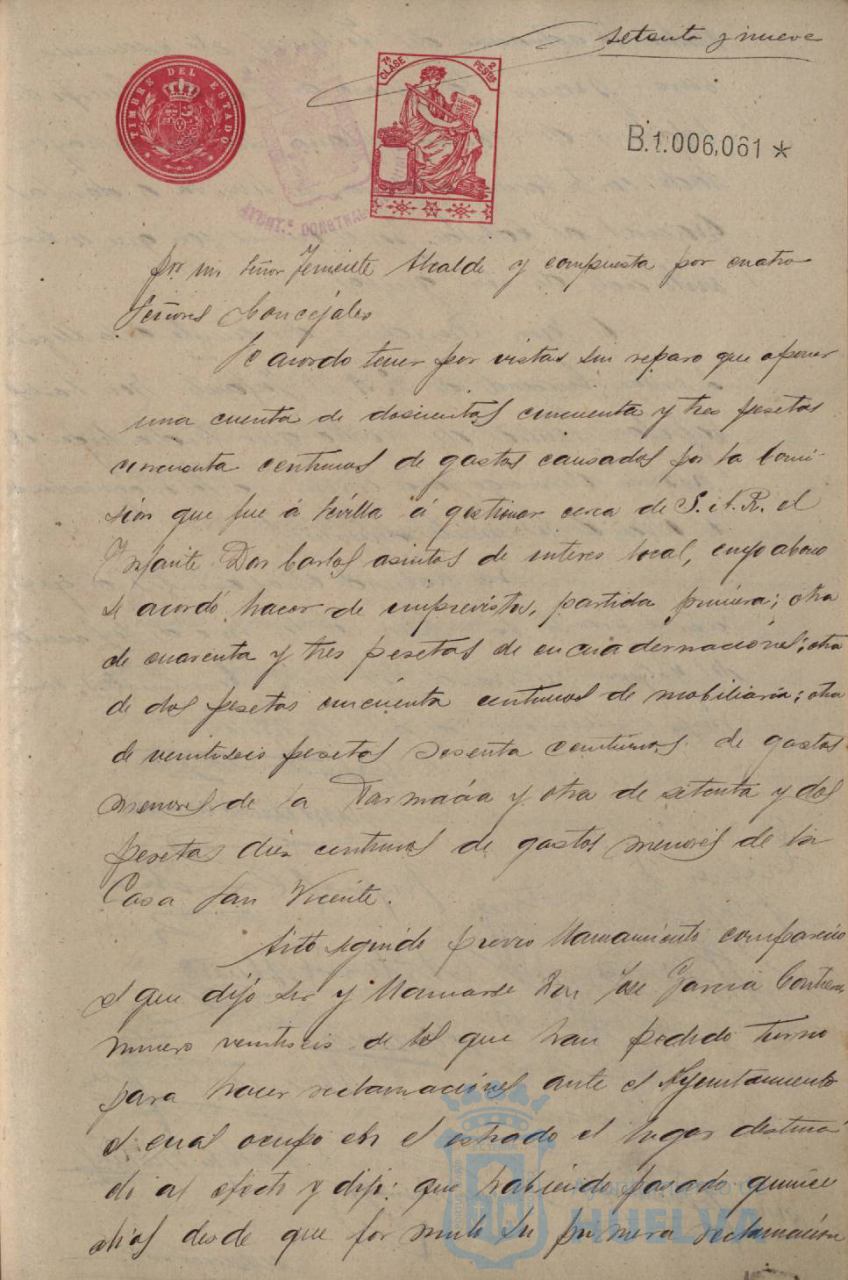 setenta y nueve
TIMBRE DEL ESTADO
7ª CLASE
2 PESTAS
B.1.006,061 *
por un Señor Teniente Alcalde y compuesta por cuatro
Señores Concejales
Se acordo tener por vistas sin reparo que oponer
una cuenta de doscientas cincuenta y tres pesetas
cincuenta centimos de gastos causados por la Comi-
sión que fue á Sevilla á gestionar cerca de S. A. R. el
Infante Don Carlos asuntos de interes local, cuyo abono
se acordó hacer de imprevistos, partida primera; otra
de cuarenta y tres pesetas de encuadernaciones; otra
de dos pesetas cincuenta centimos de mobiliario; otra
de veintiseis pesetas sesenta centimos de gastos
menores de la Farmacia y otra de setenta y dos
pesetas diez centimos de gastos menores de la
Casa San Vicente.
Acto seguido previo llamamiento compareció
el que dijo ser y llamarse Don Jose Garcia
numero veintiseis de los que han pedido turno
para hacer reclamaciones ante el Ayuntamiento
el cual ocupo en el estrado el lugar destina
do al efecto y dijo: que habiendo pasado quince
dias desde que formuló su primera reclamación
HUELVA